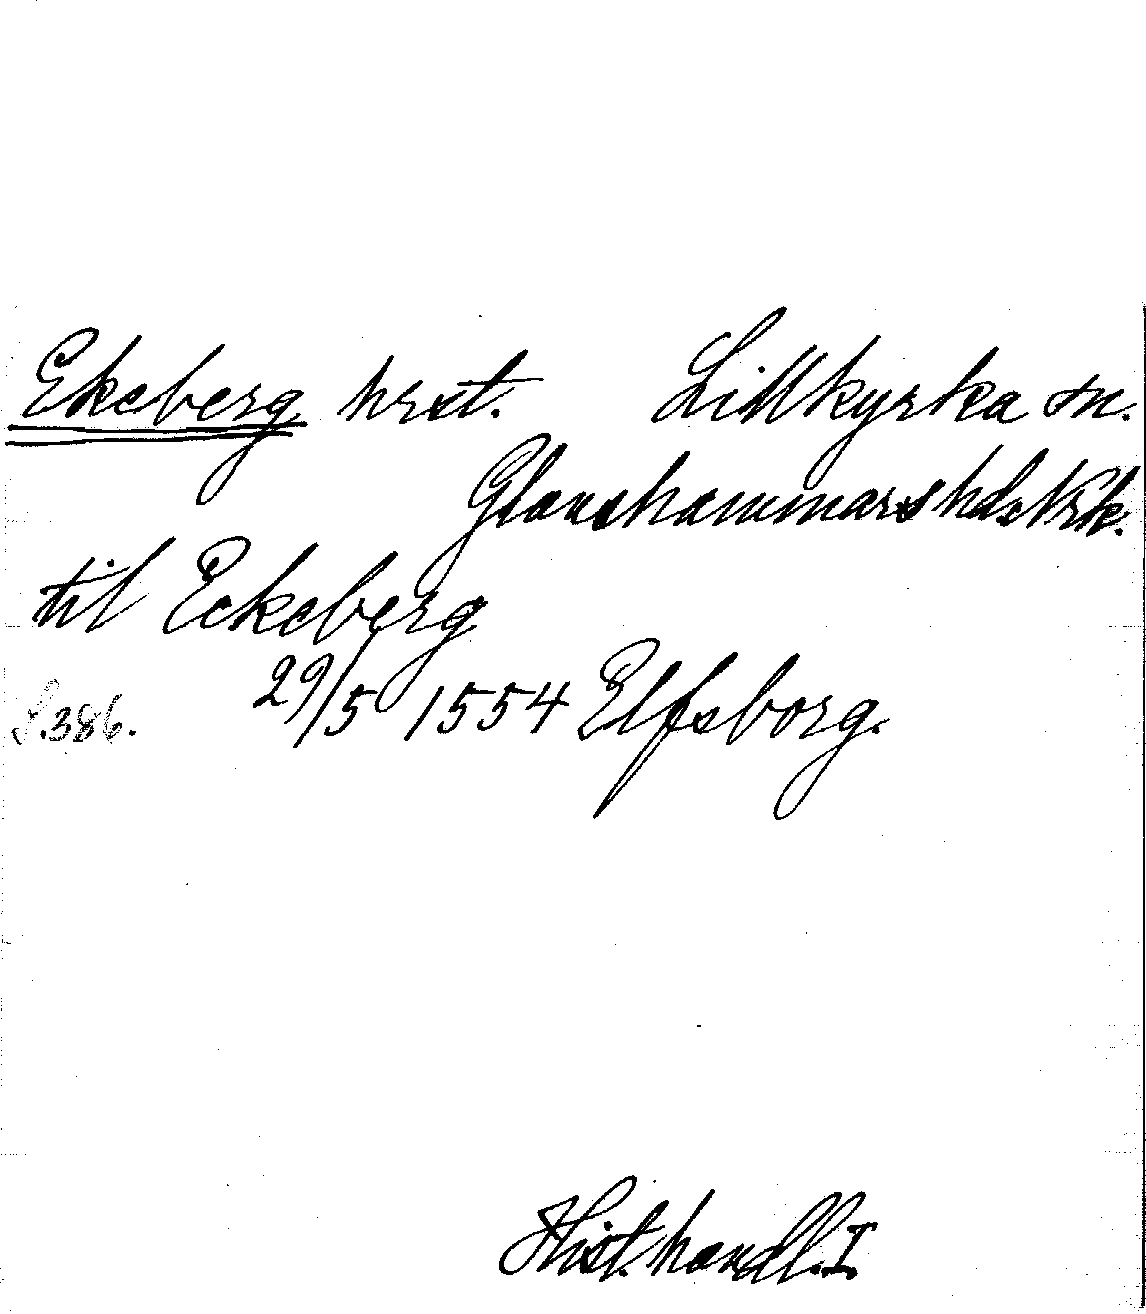 Ekeberg hrst. Lillkyrka sn.
Glanshammars hd. Nrk.
til Eckeberg
S. 386. 29/5 1554 Elfsborg.
Hist. handl. I.